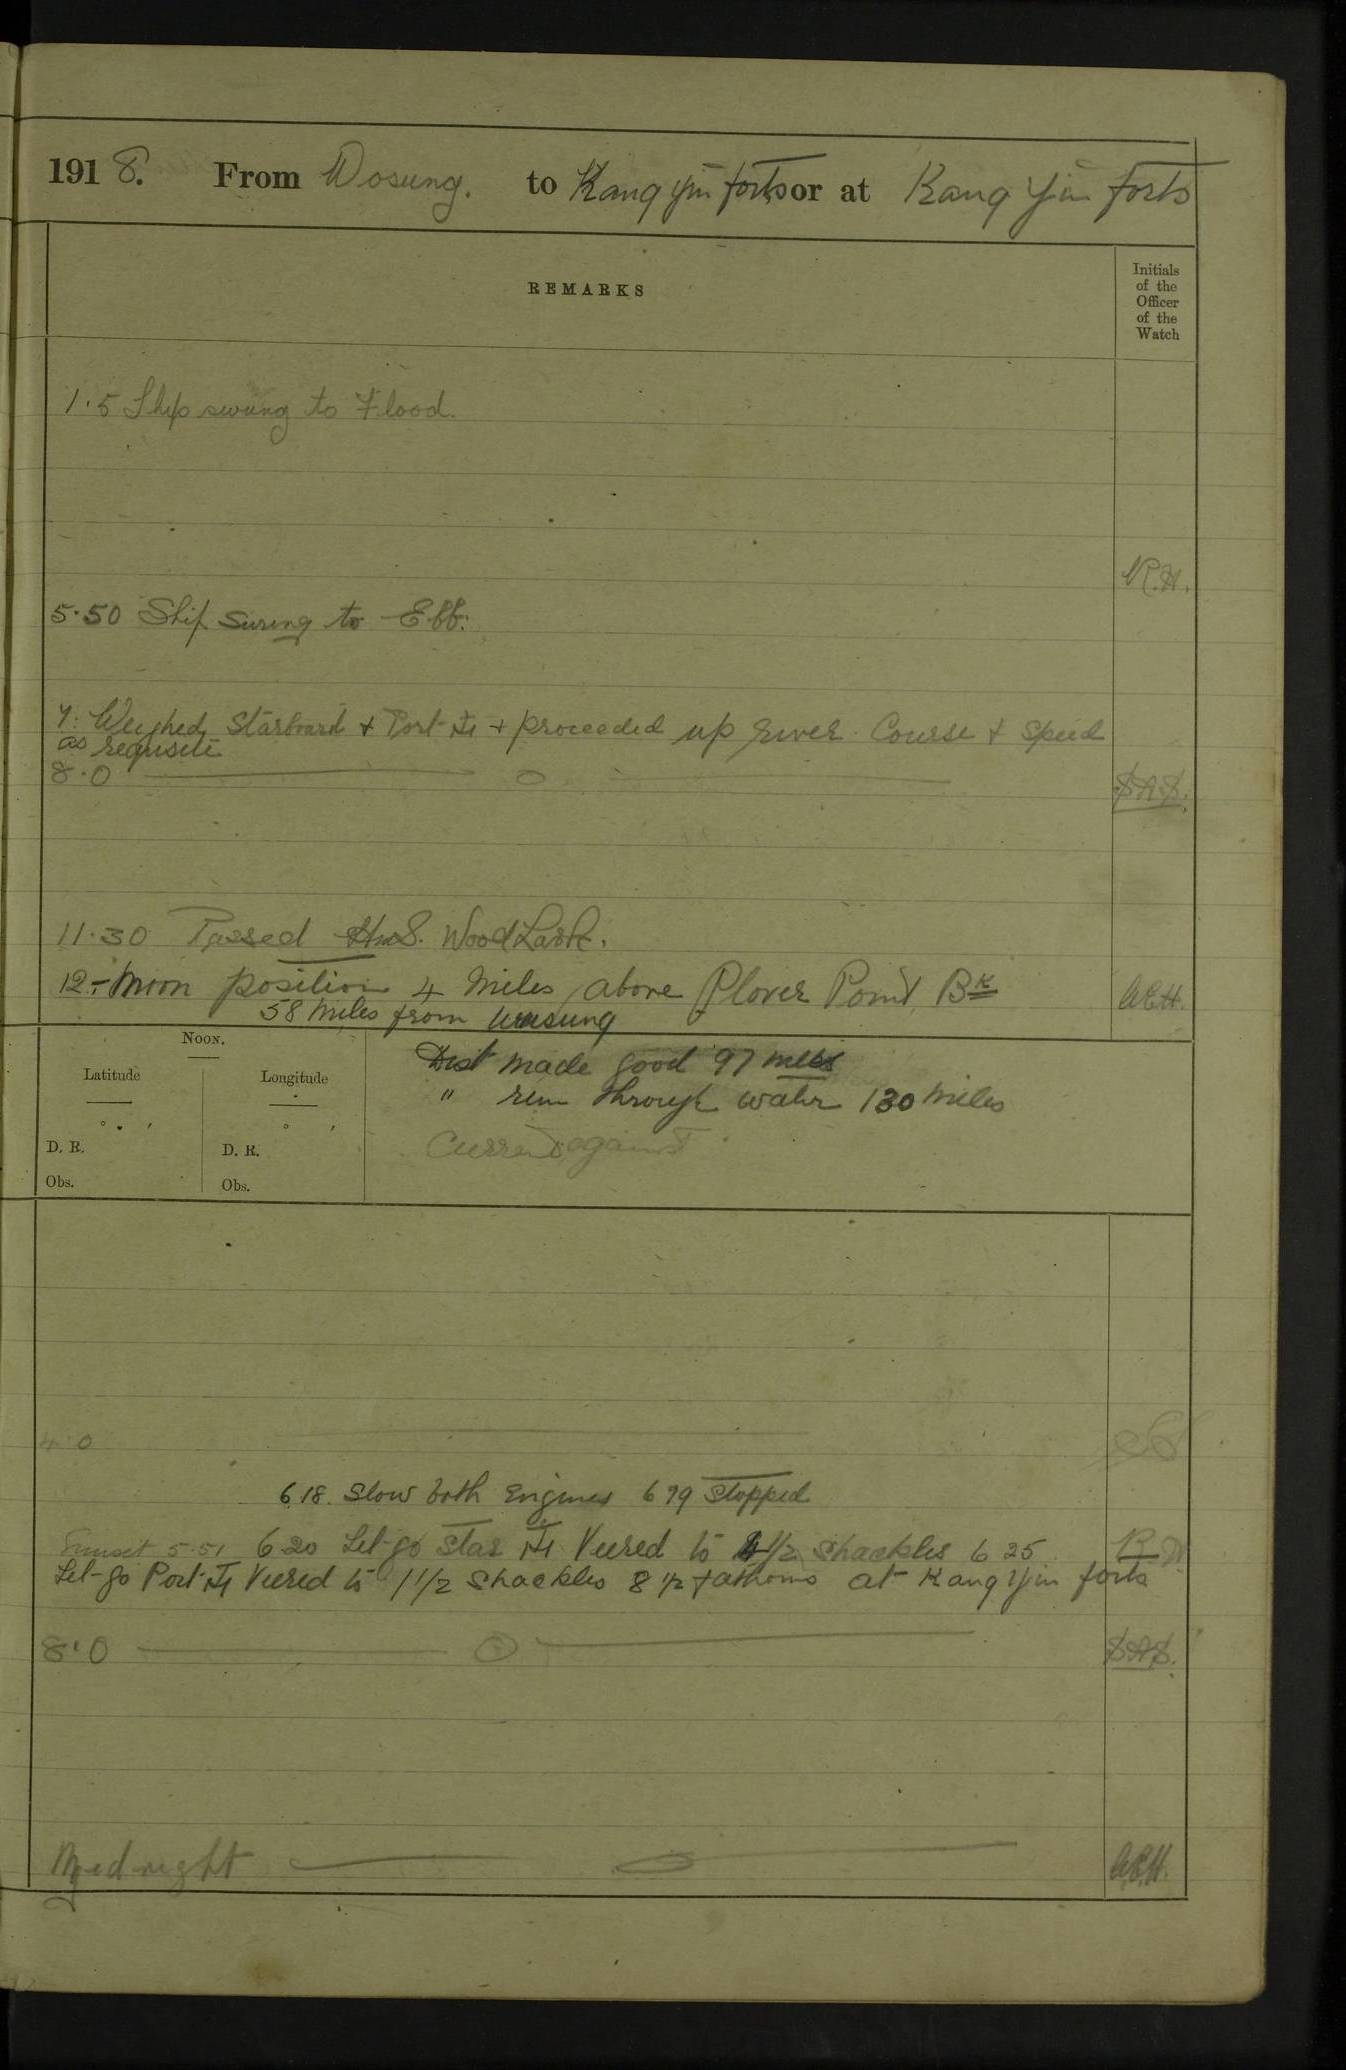 1918. From Wosung. to Kang Yin forts, or at Kang Yin forts
REMARKS
Initials
of the
Officer
of the
Watch
1.5 Ship swung to Flood.
R.H.
5.50 Ship swung to Ebb.
7: Weighed Starboard + Port ⚓ + proceeded up river. Course + Speed
as requisite
8.0 ——— o ——— S.A.S.
11.30 Passed HmS. WoodLark.
12.- Noon position 4 Miles above Plover Point Bk A.E.H.
58 Miles from Wusung
Noon.
Latitude Longitude
D. R. D. R.
Obs. Obs.
Dist made good 97 miles
" run through water 130 Miles
Current against
4.0
6.18. Slow both Engines 6 19 Stopped
Sunset 5.51 6 20 Let-go Star ⚓ Veered to 4 1/2 shackles 6 25
Let-go Port ⚓ Veered to 1 1/2 Shackles 8 1/2 fathoms at Kang Yin forts
8.0 ——— o ——— S.A.S.
Midnight ——— o ——— A.E.H.